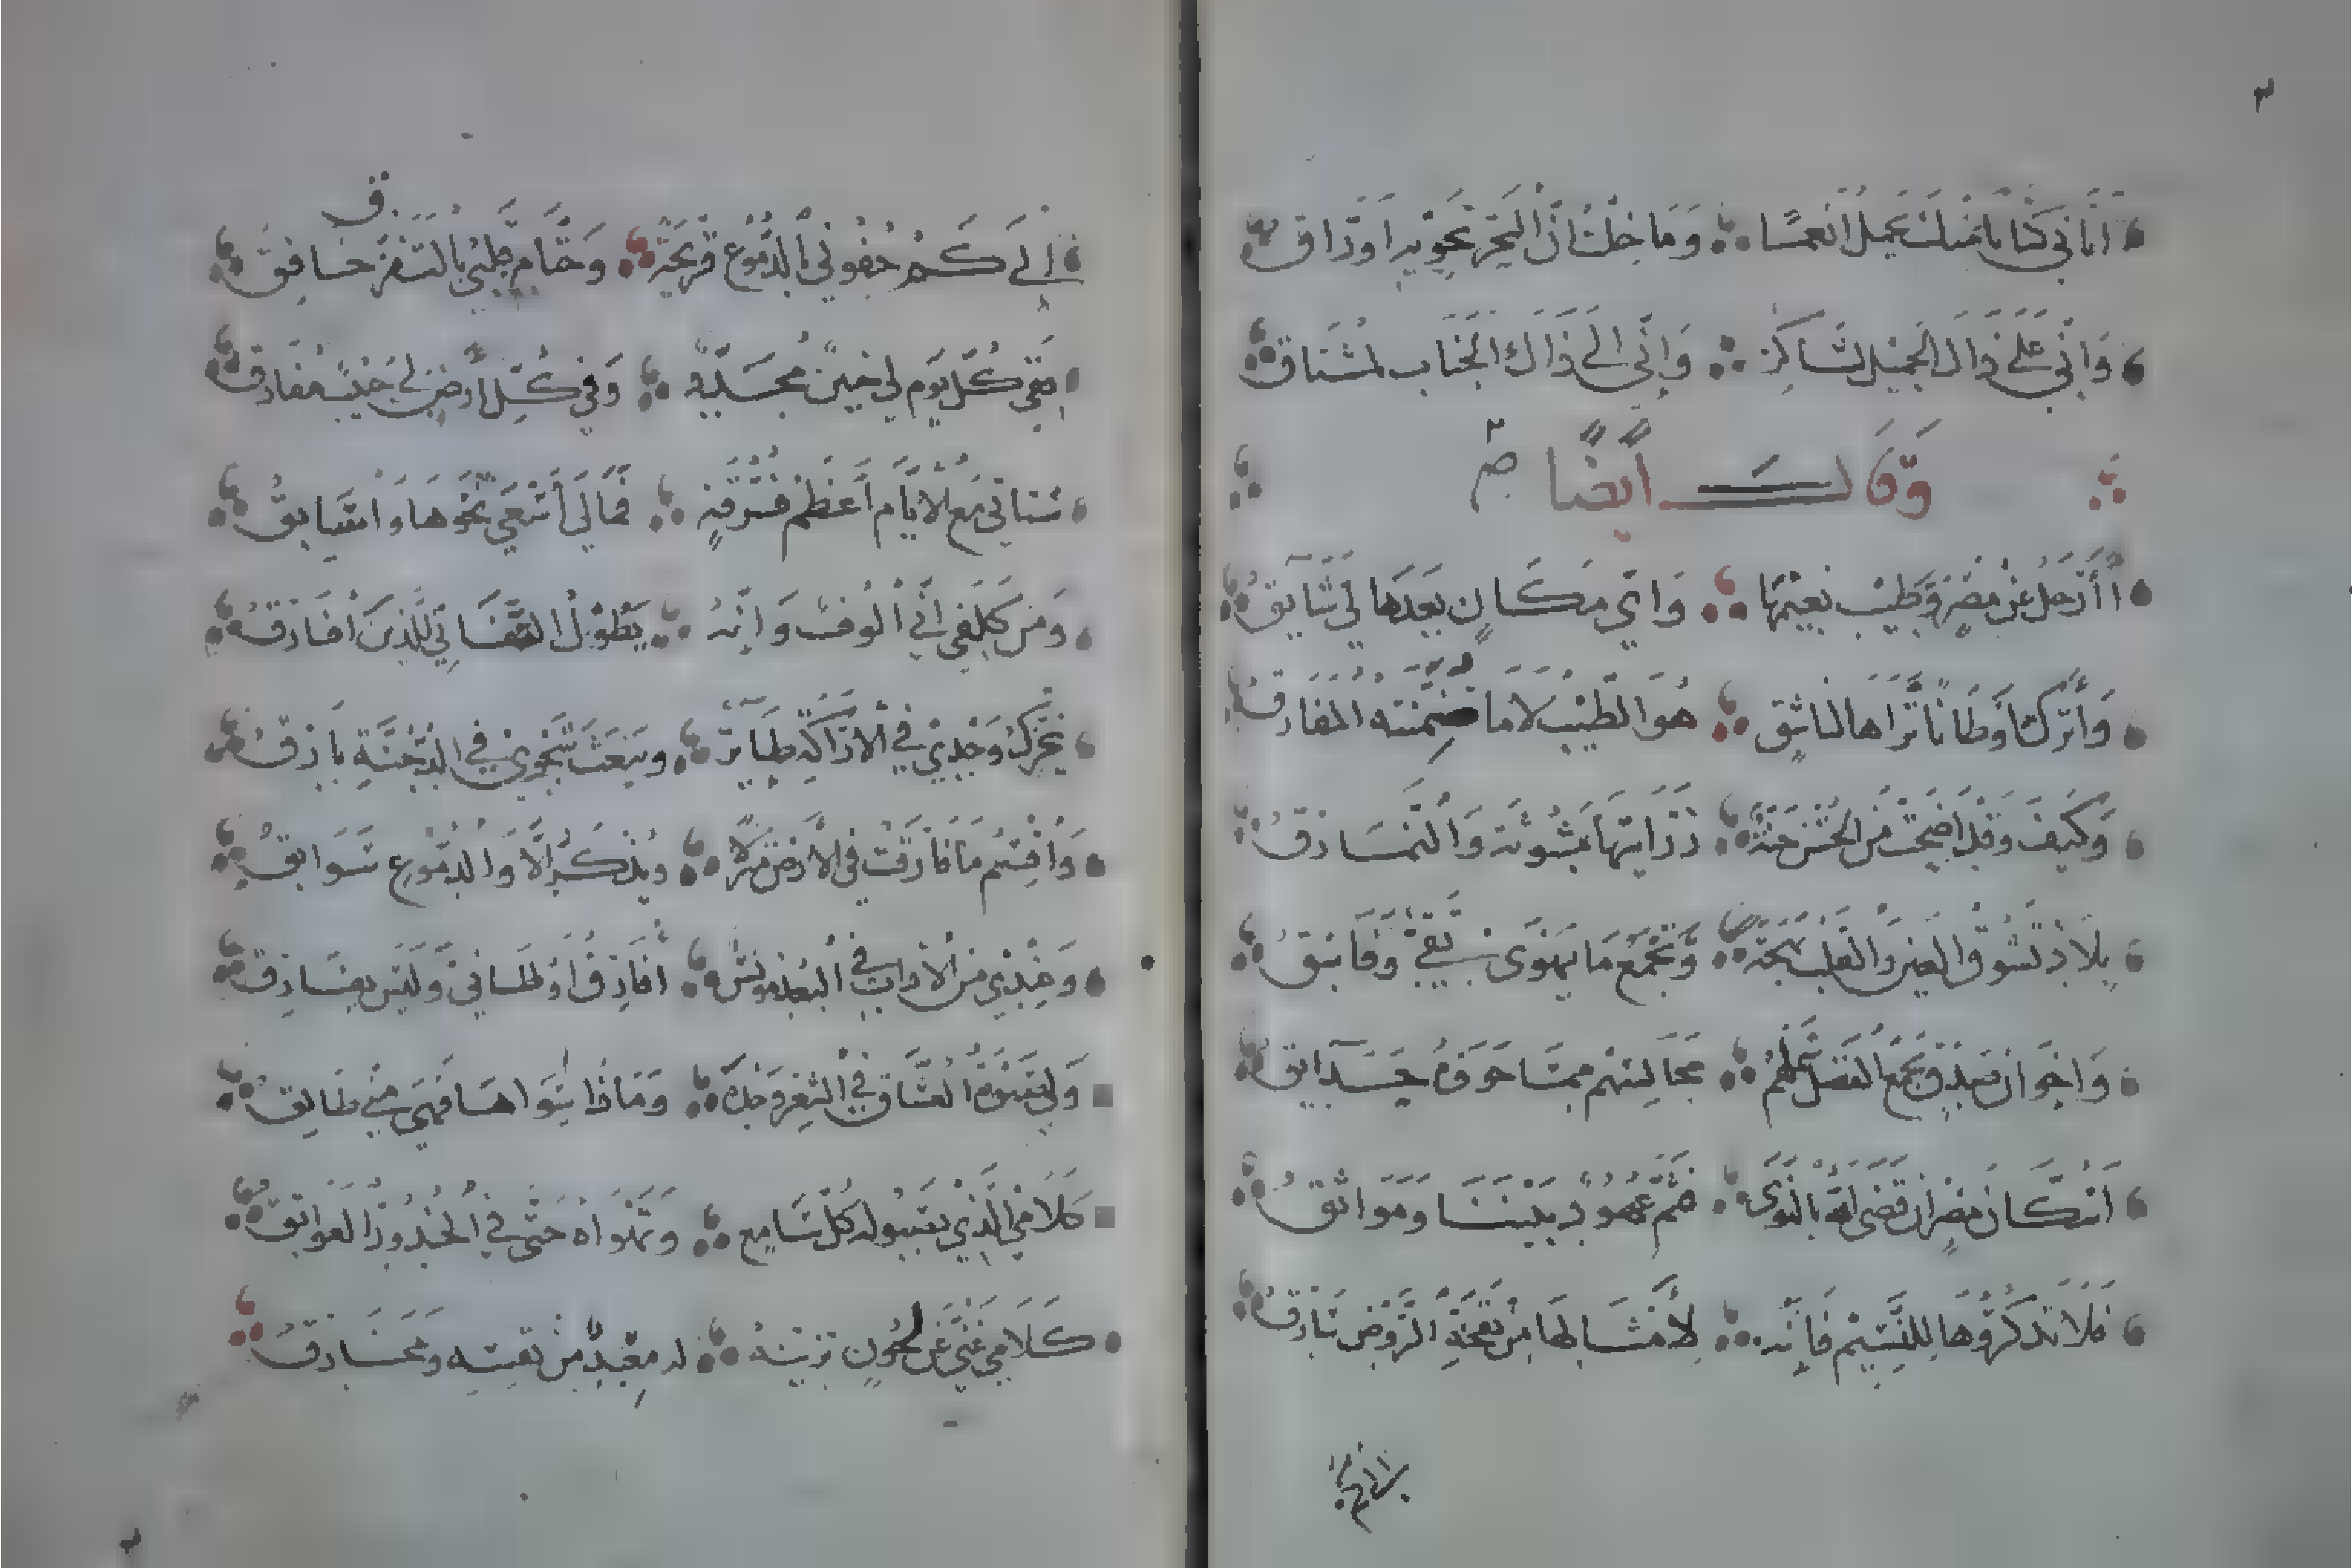 ٣
أتاني كتاب منك يحمل أنعما وما خلت أن البحر تحويه أوراق
وإني على ذاك الجميل لشاكر وإني إلى ذاك الجناب لمشتاق
وقال أيضا
أأرحل عن مصر وطيب نعيمها وأي مكان بعدها لي شايق
وأترك أوطانا ثراها لناشق هو الطيب لا ما ضمنته المفارق
وكيف وقد أضحت من الحسن جنة زرابيها مبثوثة والنمارق
بلاد تشوق العين والقلب بهجة وتجمع ما يهوى تقي وفاسق
وإخوان صدق يجمع الفضل شملهم مجالسهم مما حووه حدايق
أسكان مصر إن قضى الله بالنوى فثم عهود بيننا ومواثق
فلا تذكروها للنسيم فإنه لأمثالها من نفحة الروض سارق
إلى كم جفوني بالدموع قريحة وحتام قلبي بالتفرق خافق
ففي كل يوم لي حنين مجدد وفي كل أرض لي حبيب مفارق
ستاتي مع الأيام أعظم فرقة فما لي أسعى نحوها وأسابق
ومن خلقي أني ألوف وأنه يطول التفاتي للذين أفارق
يحرك وجدي في الأراكة طاير ويبعث شجوي في الدجنة بارق
وأقسم ما فارقت في الأرض منزلا ويذكر إلا والدموع سوابق
وعندي من الآداب في البعد مونس أفارق أوطاني وليس يفارق
ولي صبوة العشاق في الشعر وحده وماذا سواها فهي مني طالق
كلامي الذي يصبو له كل سامع ويهواه حتى في الخدور العواتق
كلامي غني عن لحون تزينه له معبد من نفسه ومخارق